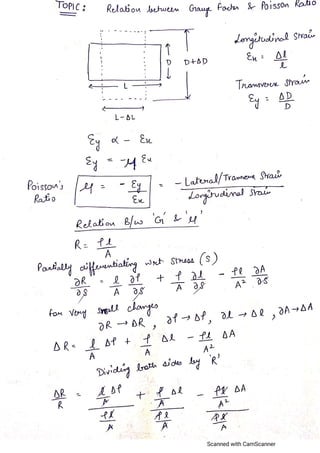 TOPIC : Relation between Gauge Factor & Poisson Ratio
Longitudinal Strain
Ex = Δl / l
D D+ΔD
L
L-ΔL
Transverse strain
Ey = ΔD / D
Ey α - Ex
Ey = -μ Ex
Poisson's Ratio μ = - Ey / Ex = - Lateral/Transverse Strain / Longitudinal Strain
Relation B/w 'G' & 'μ'
R = ρl / A
Partially differentiating wrt stress (s)
∂R/∂s = l/A ∂ρ/∂s + ρ/A ∂l/∂s - ρl/A² ∂A/∂s
for very small changes
∂R → ΔR , ∂ρ → Δρ, ∂l → Δl , ∂A → ΔA
ΔR = l/A Δρ + ρ/A Δl - ρl/A² ΔA
Dividing both sides by 'R'
ΔR/R = (l/A Δρ)/(ρl/A) + (ρ/A Δl)/(ρl/A) - (ρl/A² ΔA)/(ρl/A)
Scanned with CamScanner